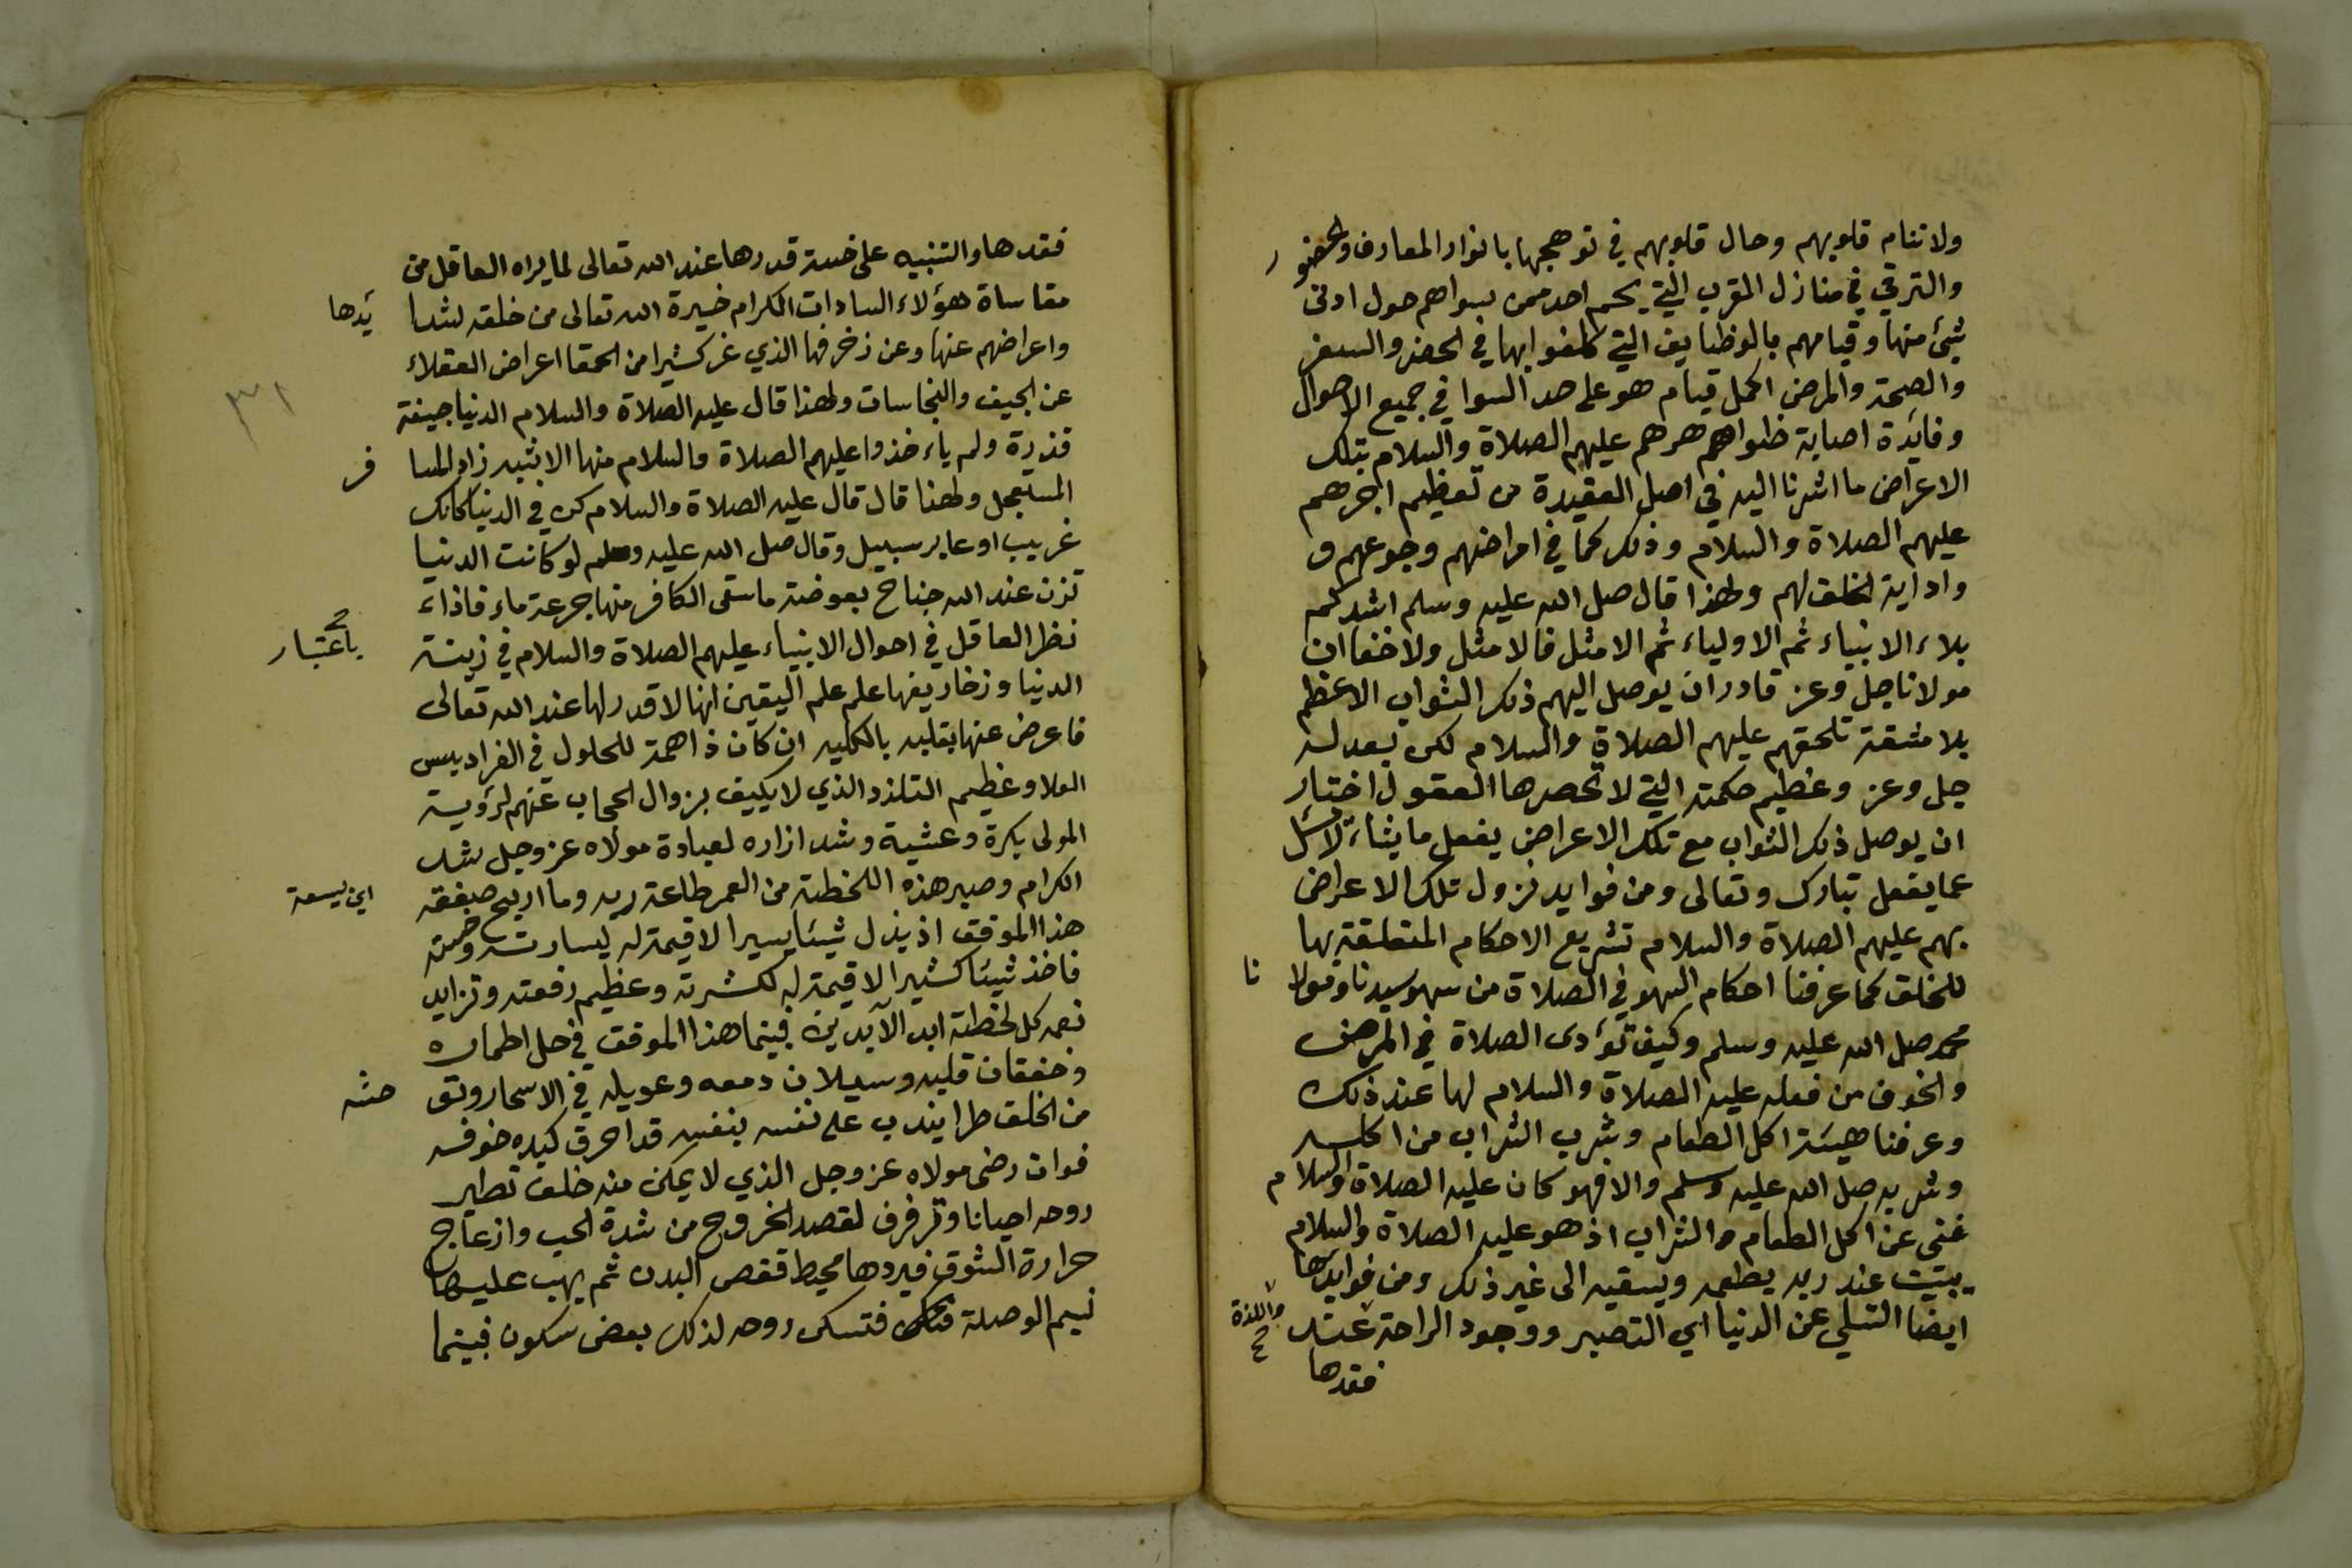 ولا تنام قلوبهم وحال قلوبهم في توهجها بانوار المعارف والحضور
والترقي في منازل القرب التي يحم احد ممن سواهم حول ادنى
شيئ منها وقيامهم بالوظايف التي كلفوا بها في الحضر والسفر
والصحة والمرض اكمل قيام هو على حد السوا في جميع الاحوال
وفائدة اصابة ظواهرهم عليهم الصلاة والسلام بتلك
الاعراض ما اشرنا اليه في اصل العقيدة من تعظيم اجرهم
عليهم الصلاة والسلام وذلك كما في امراضهم وجوعهم و
واداية الخلق لهم ولهذا قال صلى الله عليه وسلم اشدكم
بلاء الانبياء ثم الاولياء ثم الامثل فالامثل ولا خفا ان
مولانا جل وعز قادر ان يوصل اليهم ذلك الثواب الاعظم
بلا مشقة تلحقهم عليهم الصلاة والسلام لكن بعدله
جل وعز وعظيم حكمته التي لا تحصرها العقول اختار
ان يوصل ذلك الثواب مع تلك الاعراض يفعل ما يشاء لا يسئل
عما يفعل تبارك وتعالى ومن فوايد نزول تلك الاعراض
بهم عليهم الصلاة والسلام تشريع الاحكام المتعلقة بها
للخلق كما عرفنا احكام السهو في الصلاة من سهو سيدنا ومولا نا
محمد صلى الله عليه وسلم وكيف تؤدى الصلاة في المرض
والخوف من فعله عليه الصلاة والسلام لها عند ذلك
وعرفنا هيئة اكل الطعام وشرب الشراب من اكله
وشربه صلى الله عليه وسلم والا فهو كان عليه الصلاة والسلام
غنى عن اكل الطعام والشراب اذ هو عليه الصلاة والسلام
يبيت عند ربه يطعمه ويسقيه الى غير ذلك ومن فوايدها
ايضا التسلي عن الدنيا اي التصبر ووجود الراحة عند
واللذة
فقدها
فقدها والتنبيه على خسة قدرها عند الله تعالى لما يراه العاقل من
مقاساة هؤلاء السادات الكرام خيرة الله تعالى من خلقه لشدا يدها
واعراضهم عنها وعن زخرفها الذي غر كثيرا من الحمقا اعراض العقلاء
عن الجيف والنجاسات ولهذا قال عليه الصلاة والسلام الدنيا جيفة
٣١
قذرة ولم ياءخذوا عليهم الصلاة والسلام منها الا شبه زاد المسا فر
المستعجل ولهذا قال قال عليه الصلاة والسلام كن في الدنيا كانك
غريب او عابر سبيل وقال صلى الله عليه وسلم لو كانت الدنيا
تزن عند الله جناح بعوضة ما سقى الكافر منها جرعة ماء فاذاء
نظر العاقل في احوال الانبياء عليهم الصلاة والسلام في زينة
باعتبار
الدنيا وزخاريفها علم علم اليقين انها لا قدر لها عند الله تعالى
فاعرض عنها بقلبه بالكلية ان كان ذا همة للحلول في الفراديس
العلا وعظيم التلذذ الذي لا يكيف بزوال الحجاب عنهم لرؤية
المولى بكرة وعشية وشد ازاره لعبادة مولاه عز وجل شد
الكرام وصبر هذه اللحظة من العمر طاعة ربه وما اربح صفقة
هذا الموفق اذ بذل شيئا يسيرا لا قيمة له ليسارته وخسة
فاخذ شيئا كثيرا لا قيمة له لكثرته وعظيم رفعته وتزايد
نعمه كل لحظة ابد الآبدين فبينما هذا الموفق في حل اطماره
وخفقان قلبه وسيلان دمعه وعويله في الاسحار وتو حشه
من الخلق طرا يندب على نفسه بنفسه قد احرق كبده خوف
فوات رضى مولاه عز وجل الذي لا يمكن منه خلف تطير
روحه احيانا وترفرف لقصد الخروج من شدة الحب وازعاج
حرارة الشوق فيردها محيط قفص البدن ثم يهب عليها
نسيم الوصلة فتسكن روحه لذلك بعض سكون فبينما